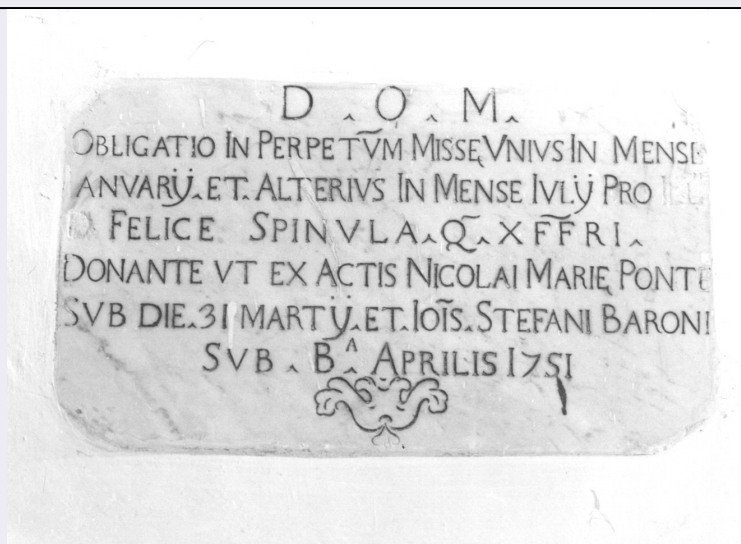 D . O . M .
OBLIGATIO IN PERPETV̄M MISSĘ VNIVS IN MENSE
ANVARIJ. ET. ALTERIVS IN MENSE IVLIJ PRO ILL
D FELICE SPINVLA. Q̄. X F̄F̄RI.
DONANTE VT EX ACTIS NICOLAI MARIĘ PONTE
SVB DIE. 31 MARTIJ. ET. IOĪS. STEFANI BARONI
SVB . B^ . APRILIS 1751